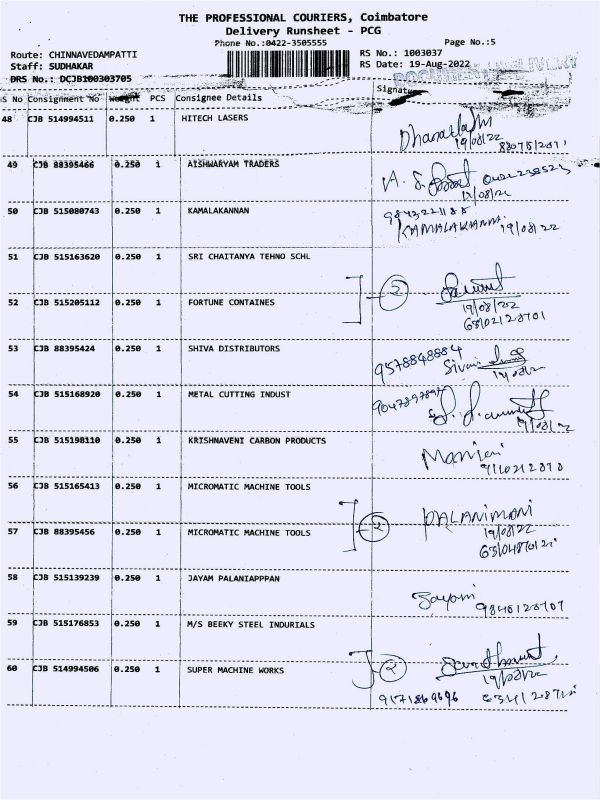 THE PROFESSIONAL COURIERS, Coimbatore
Delivery Runsheet - PCG
Phone No.:0422-3505555 Page No.:5
Route: CHINNAVEDAMPATTI RS No.: 1003037
Staff: SUDHAKAR RS Date: 19-Aug-2022
DRS No.: DCJB100303705
S No Consignment No Weight PCS Consignee Details Signatu
48 CJB 514994511 0.250 1 HITECH LASERS
19/08/22
49 CJB 88395466 0.250 1 AISHWARYAM TRADERS
50 CJB 515080743 0.250 1 KAMALAKANNAN
KAMALAKANNAN 19/08/22
51 CJB 515163620 0.250 1 SRI CHAITANYA TEHNO SCHL
2
52 CJB 515205112 0.250 1 FORTUNE CONTAINES
19/08/22
53 CJB 88395424 0.250 1 SHIVA DISTRIBUTORS
9578848884
54 CJB 515168920 0.250 1 METAL CUTTING INDUST
55 CJB 515198110 0.250 1 KRISHNAVENI CARBON PRODUCTS
56 CJB 515165413 0.250 1 MICROMATIC MACHINE TOOLS
PALANIMANI
2
57 CJB 88395456 0.250 1 MICROMATIC MACHINE TOOLS
19/08/22
58 CJB 515139239 0.250 1 JAYAM PALANIAPPPAN
59 CJB 515176853 0.250 1 M/S BEEKY STEEL INDURIALS
60 CJB 514994506 0.250 1 SUPER MACHINE WORKS
2
9171869696